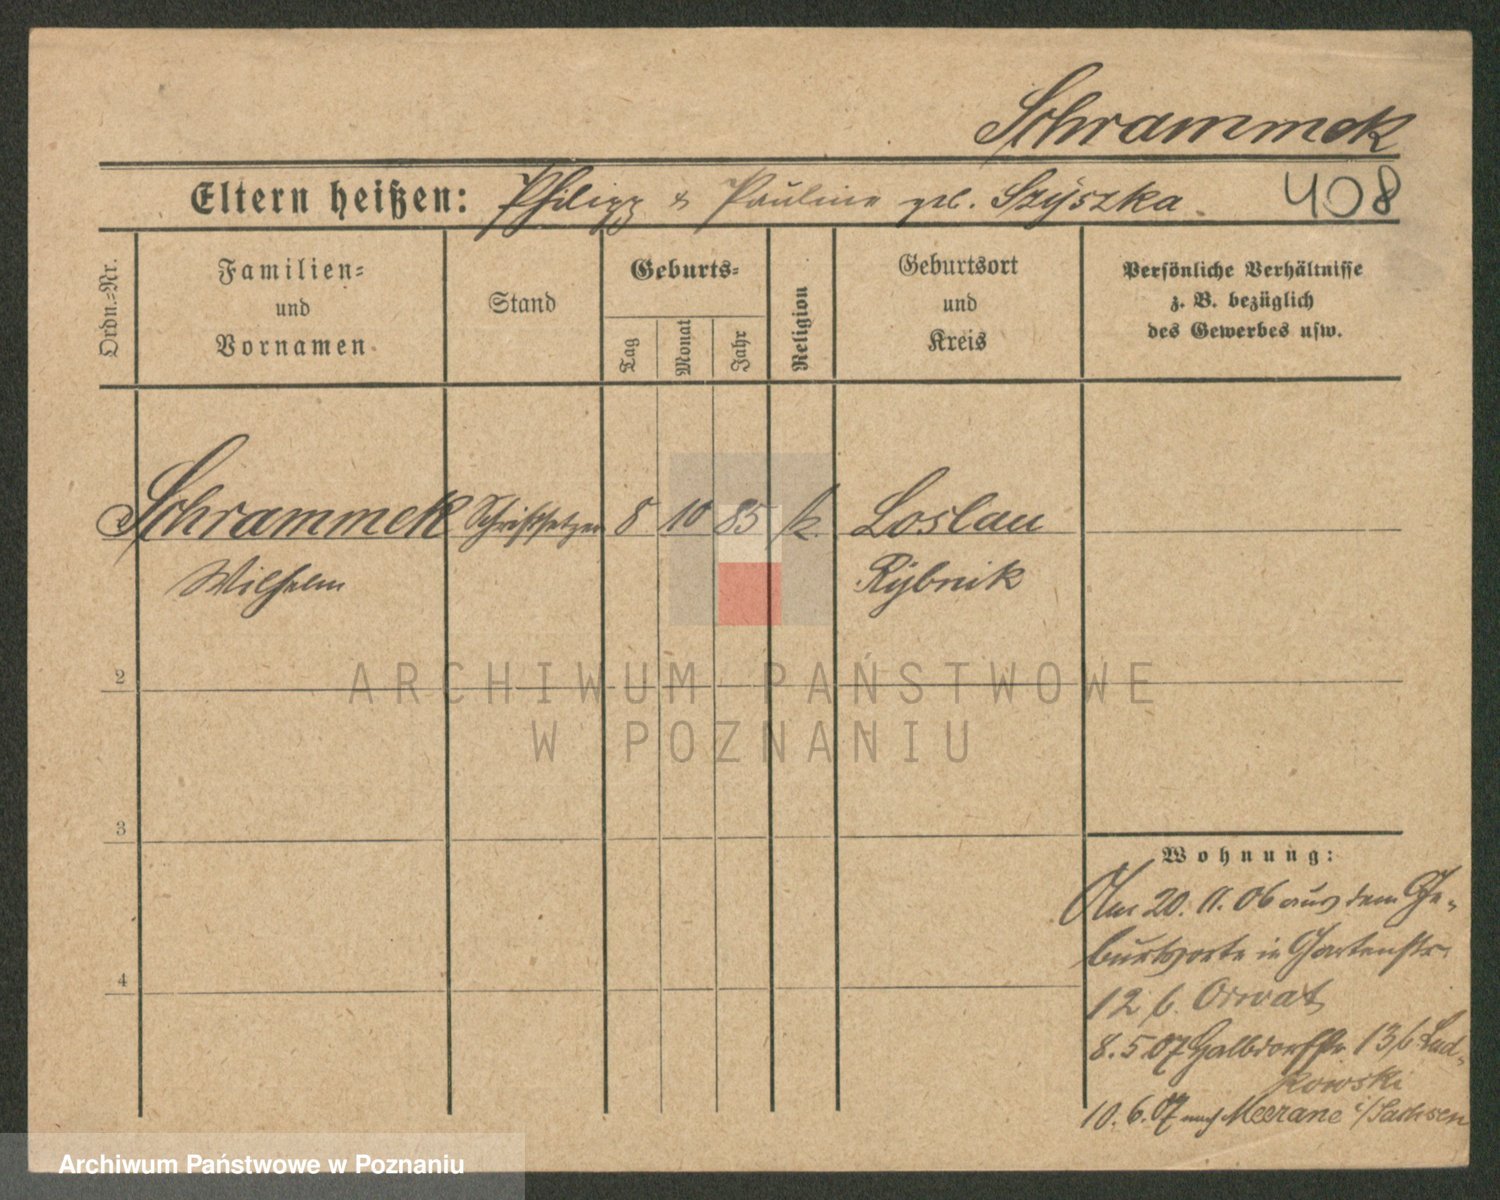 Schrammek
Eltern heißen: Philipp & Pauline geb. Szyszka.
408
Ordn.-Nr.
Familien-
und
Vornamen
Stand
Geburts-
Tag
Monat
Jahr
Religion
Geburtsort
und
Kreis
Persönliche Verhältnisse
z. B. bezüglich
des Gewerbes usw.
Schrammek Schriftsetzer 8 10 85 k. Loslau
Wilhelm Rybnik
2
ARCHIWUM PAŃSTWOWE
W POZNANIU
3
Wohnung:
Am 20. 11. 06 aus dem Ge-
burtsorte in Gartenstr.
4
12 b. Orwat
8. 5. 07 Halbdorfstr. 13 b. Lud-
kowski
10. 6. 07 nach Meerane i/Sachsen
Archiwum Państwowe w Poznaniu